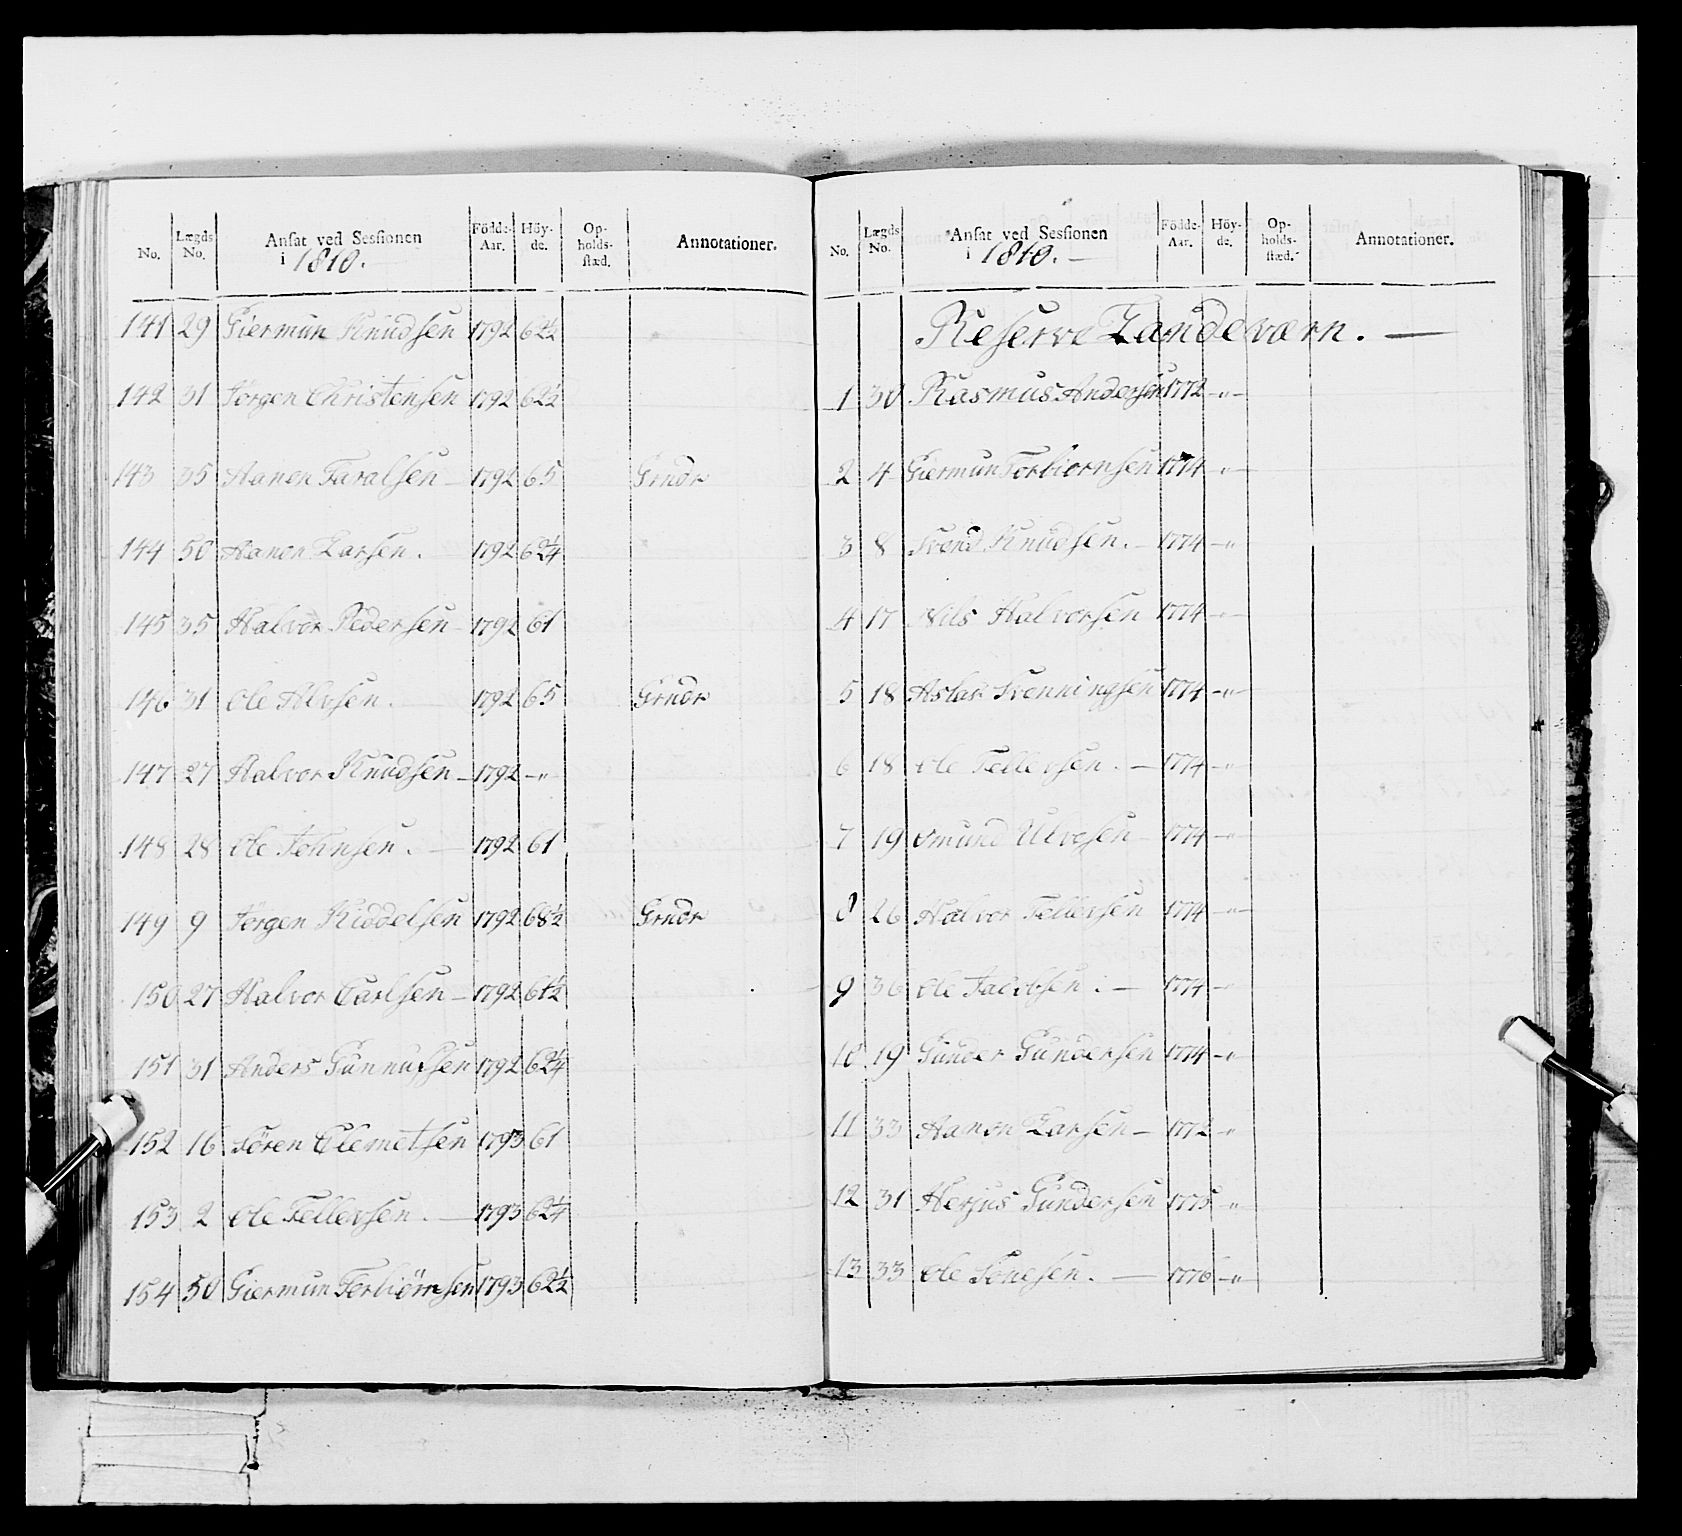 No. Lægds No. Ansat ved Sessionen i 1810. Födde-Aar. Höy-de. Op-holds-stæd. Annotationer.
141 29 Giermun Knudsen 1792 62½
142 31 Jörgen Christensen 1792 62½
143 35 Aanon Taralsen 1792 65 Grndr
144 50 Aanon Larsen. 1792 62¼
145 35 Halvor Pedersen 1792 61
146 31 Ole Alvsen. 1792 65 Grndr
147 27 Halvor Knudsen 1792 -"-
148 28 Ole Johnsen. 1792 61
149 9 Jörgen Kiddelsen 1792 68½ Grndr
150 27 Halvor Carlsen 1792 61½
151 31 Anders Gunnufsen 1792 62¼
152 16 Sören Clemetsen 1793 61
153 2 Ole Tellevsen. 1793 62¼
154 50 Giermun Torbiörnsen 1793 62½
No. Lægds No. Ansat ved Sessionen i 1810. Födde-Aar. Höy-de. Op-holds-stæd. Annotationer.
Reserve Landeværn.
1 30 Rasmus Andersen 1772 -"-
2 4 Giermun Torbiornsen 1774 -"-
3 8 Svend Knudsen. 1774 -"-
4 17 Nils Halvorsen 1774 -"-
5 18 Aslak Svenningsen 1774 -"-
6 18 Ole Tellevsen. 1774 -"-
7 19 Omund Ulvesen 1774 -"-
8 26 Halvor Tellevsen 1774 -"-
9 36 Ole Jacobsen. 1774 -"-
10 19 Gunder Gundersen 1774 -"-
11 33 Aanon Larsen 1772 -"-
12 31 Herjus Gundersen 1775 -"-
13 33 Ole Tonesen. 1776 -"-